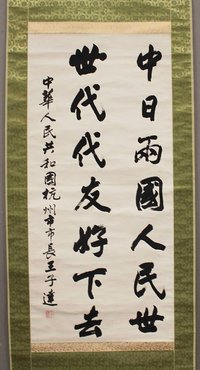 中日兩國人民世
世代代友好下去
中華人民共和國杭州市市長王子達